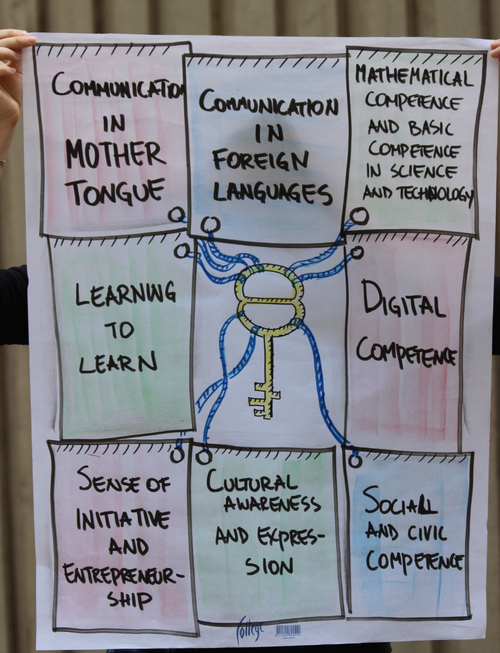 COMMUNICATION
IN
MOTHER
TONGUE
COMMUNICATION
IN
FOREIGN
LANGUAGES
MATHEMATICAL
COMPETENCE
AND BASIC
COMPETENCE
IN SCIENCE
AND TECHNOLOGY
LEARNING
TO
LEARN
DIGITAL
COMPETENCE
SENSE OF
INITIATIVE
AND
ENTREPRENEUR-
SHIP
CULTURAL
AWARENESS
AND EXPRES-
SION
SOCIAL
AND CIVIC
COMPETENCE